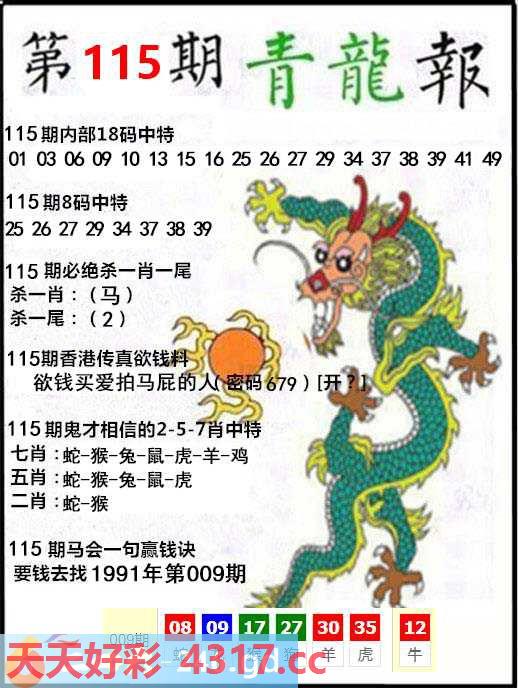 第115期青龍報
115期内部18码中特
01 03 06 09 10 13 15 16 25 26 27 29 34 37 38 39 41 49
115期8码中特
25 26 27 29 34 37 38 39
115期必绝杀一肖一尾
杀一肖：（马）
杀一尾：（2）
115期香港传真欲钱料
欲钱买爱拍马屁的人（密码679）[开？]
115期鬼才相信的2-5-7肖中特
七肖：蛇-猴-兔-鼠-虎-羊-鸡
五肖：蛇-猴-兔-鼠-虎
二肖：蛇-猴
115期马会一句赢钱诀
要钱去找1991年第009期
009期 08 09 17 27 30 35 12
蛇 猴 狗 羊 虎 牛
天天好彩 4317.cc